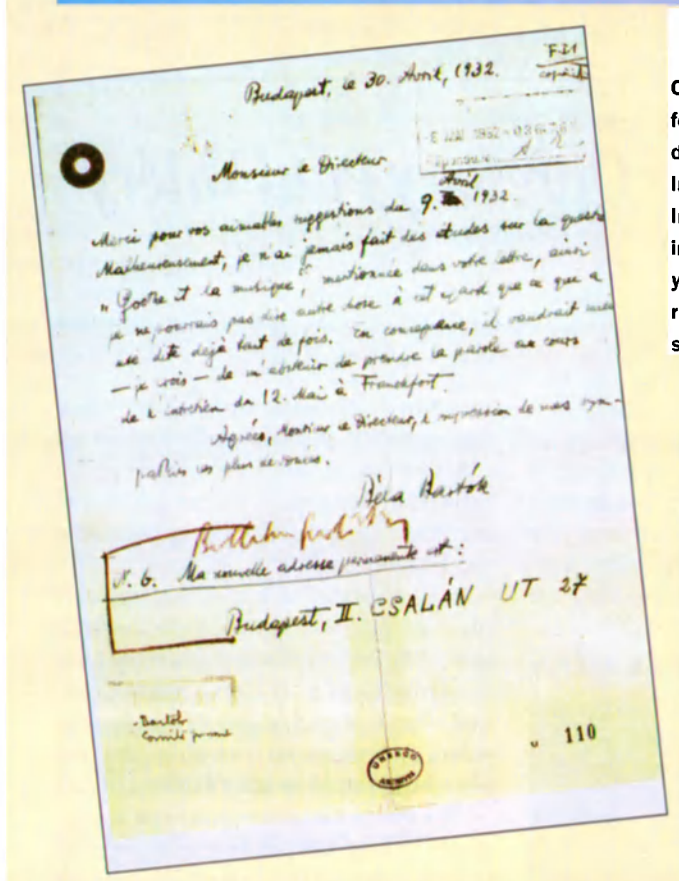 Budapest, le 30. Avril, 1932.
F.21
- 6 MAI 1932 -
Monsieur le Directeur
Avril
Merci pour vos aimables suggestions du 9. 1932.
Malheureusement, je n'ai jamais fait des études sur la
"Goethe et la musique", mentionnée dans votre lettre, ainsi
je ne pourrais pas dire autre chose à cet égard que ce qui a
été dite déjà tant de fois. En conséquence, il vaudrait
— je crois — de m'abstenir de prendre la parole au cours
de l'entretien du 12. Mai à Francfort.
Agréez, Monsieur le Directeur, l'expression de mes sym-
pathies les plus
Béla Bartók
N. b. Ma nouvelle adresse permanente est :
Budapest, II. CSALÁN UT 27
Bartók
Comité
110
UNESCO
ARCHIVES